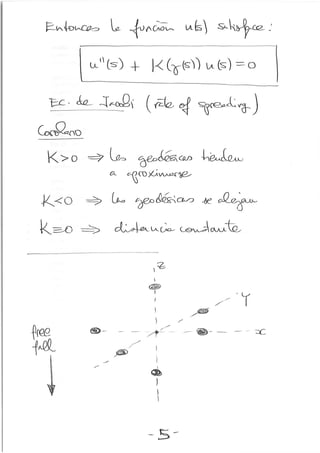 Entonces la función u(s) satisface:
u''(s) + K(γ(s)) u(s) = 0
Ec. de Jacobi (rate of spreading)
Corolario
K>0 ⇒ las geodésicas tienden
a aproximarse
K<0 ⇒ las geodésicas se alejan
K≡0 ⇒ distancia constante
z
y
free
fall
x
-5-